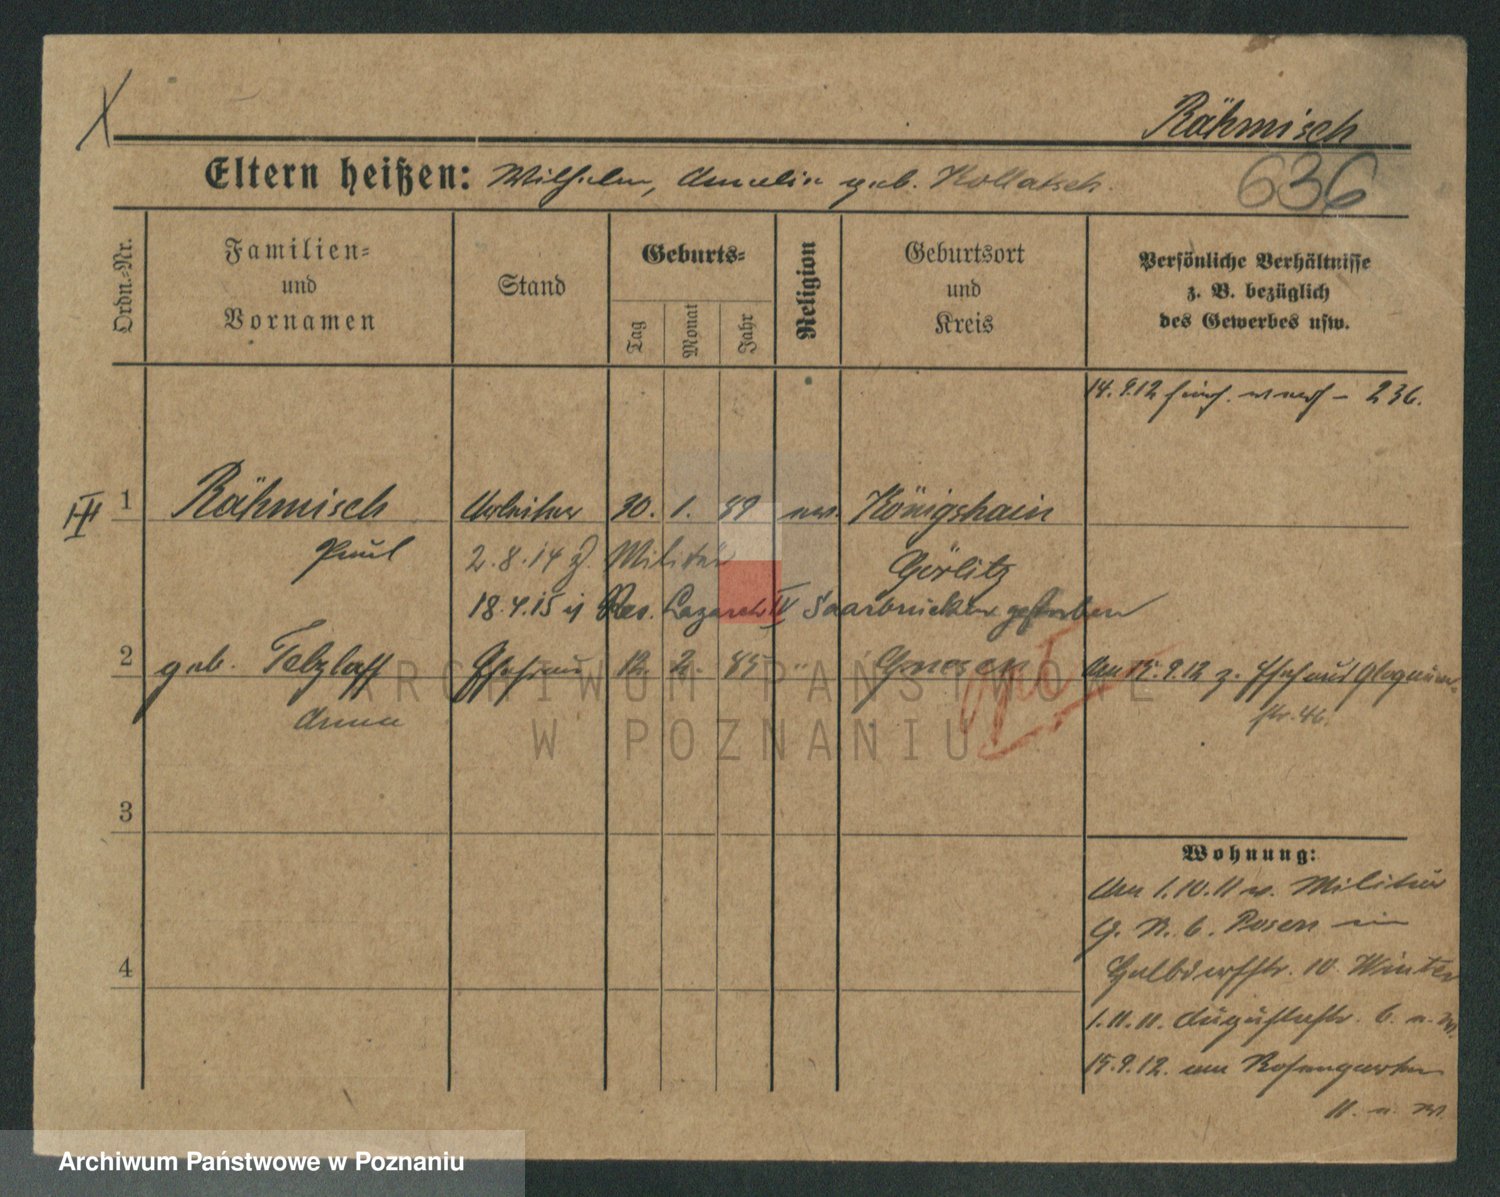 Rähmisch
636
Eltern heißen: Wilhelm, Amalie geb. Kollatsch.
Ordn.-Nr.
Familien- und Vornamen
Stand
Geburts-
Tag
Monat
Jahr
Religion
Geburtsort und Kreis
Persönliche Verhältnisse z. B. bezüglich des Gewerbes usw.
14.9.12 - 236.
III
1 Rähmisch Arbeiter 30. 1. 89 ev. Königshain
Paul 2.8.14 z. Militär Görlitz
18.4.15 i/ Res. Lazarett IV Saarbrücken gestorben
2 geb. Tetzlaff Ehefrau 12. 2. 85 " Gnesen Am 15.9.12 z. Ehefrau Glogauer-
Anna str. 46.
3
4
Wohnung:
Am 1.10.11 v. Militär
G. R. 6. Posen in
Halbdorfstr. 10 Winter
1.11.11. Augustastr. 6.
15.9.12. am Rosengarten
11.
ARCHIWUM PAŃSTWOWE
W POZNANIU
Archiwum Państwowe w Poznaniu